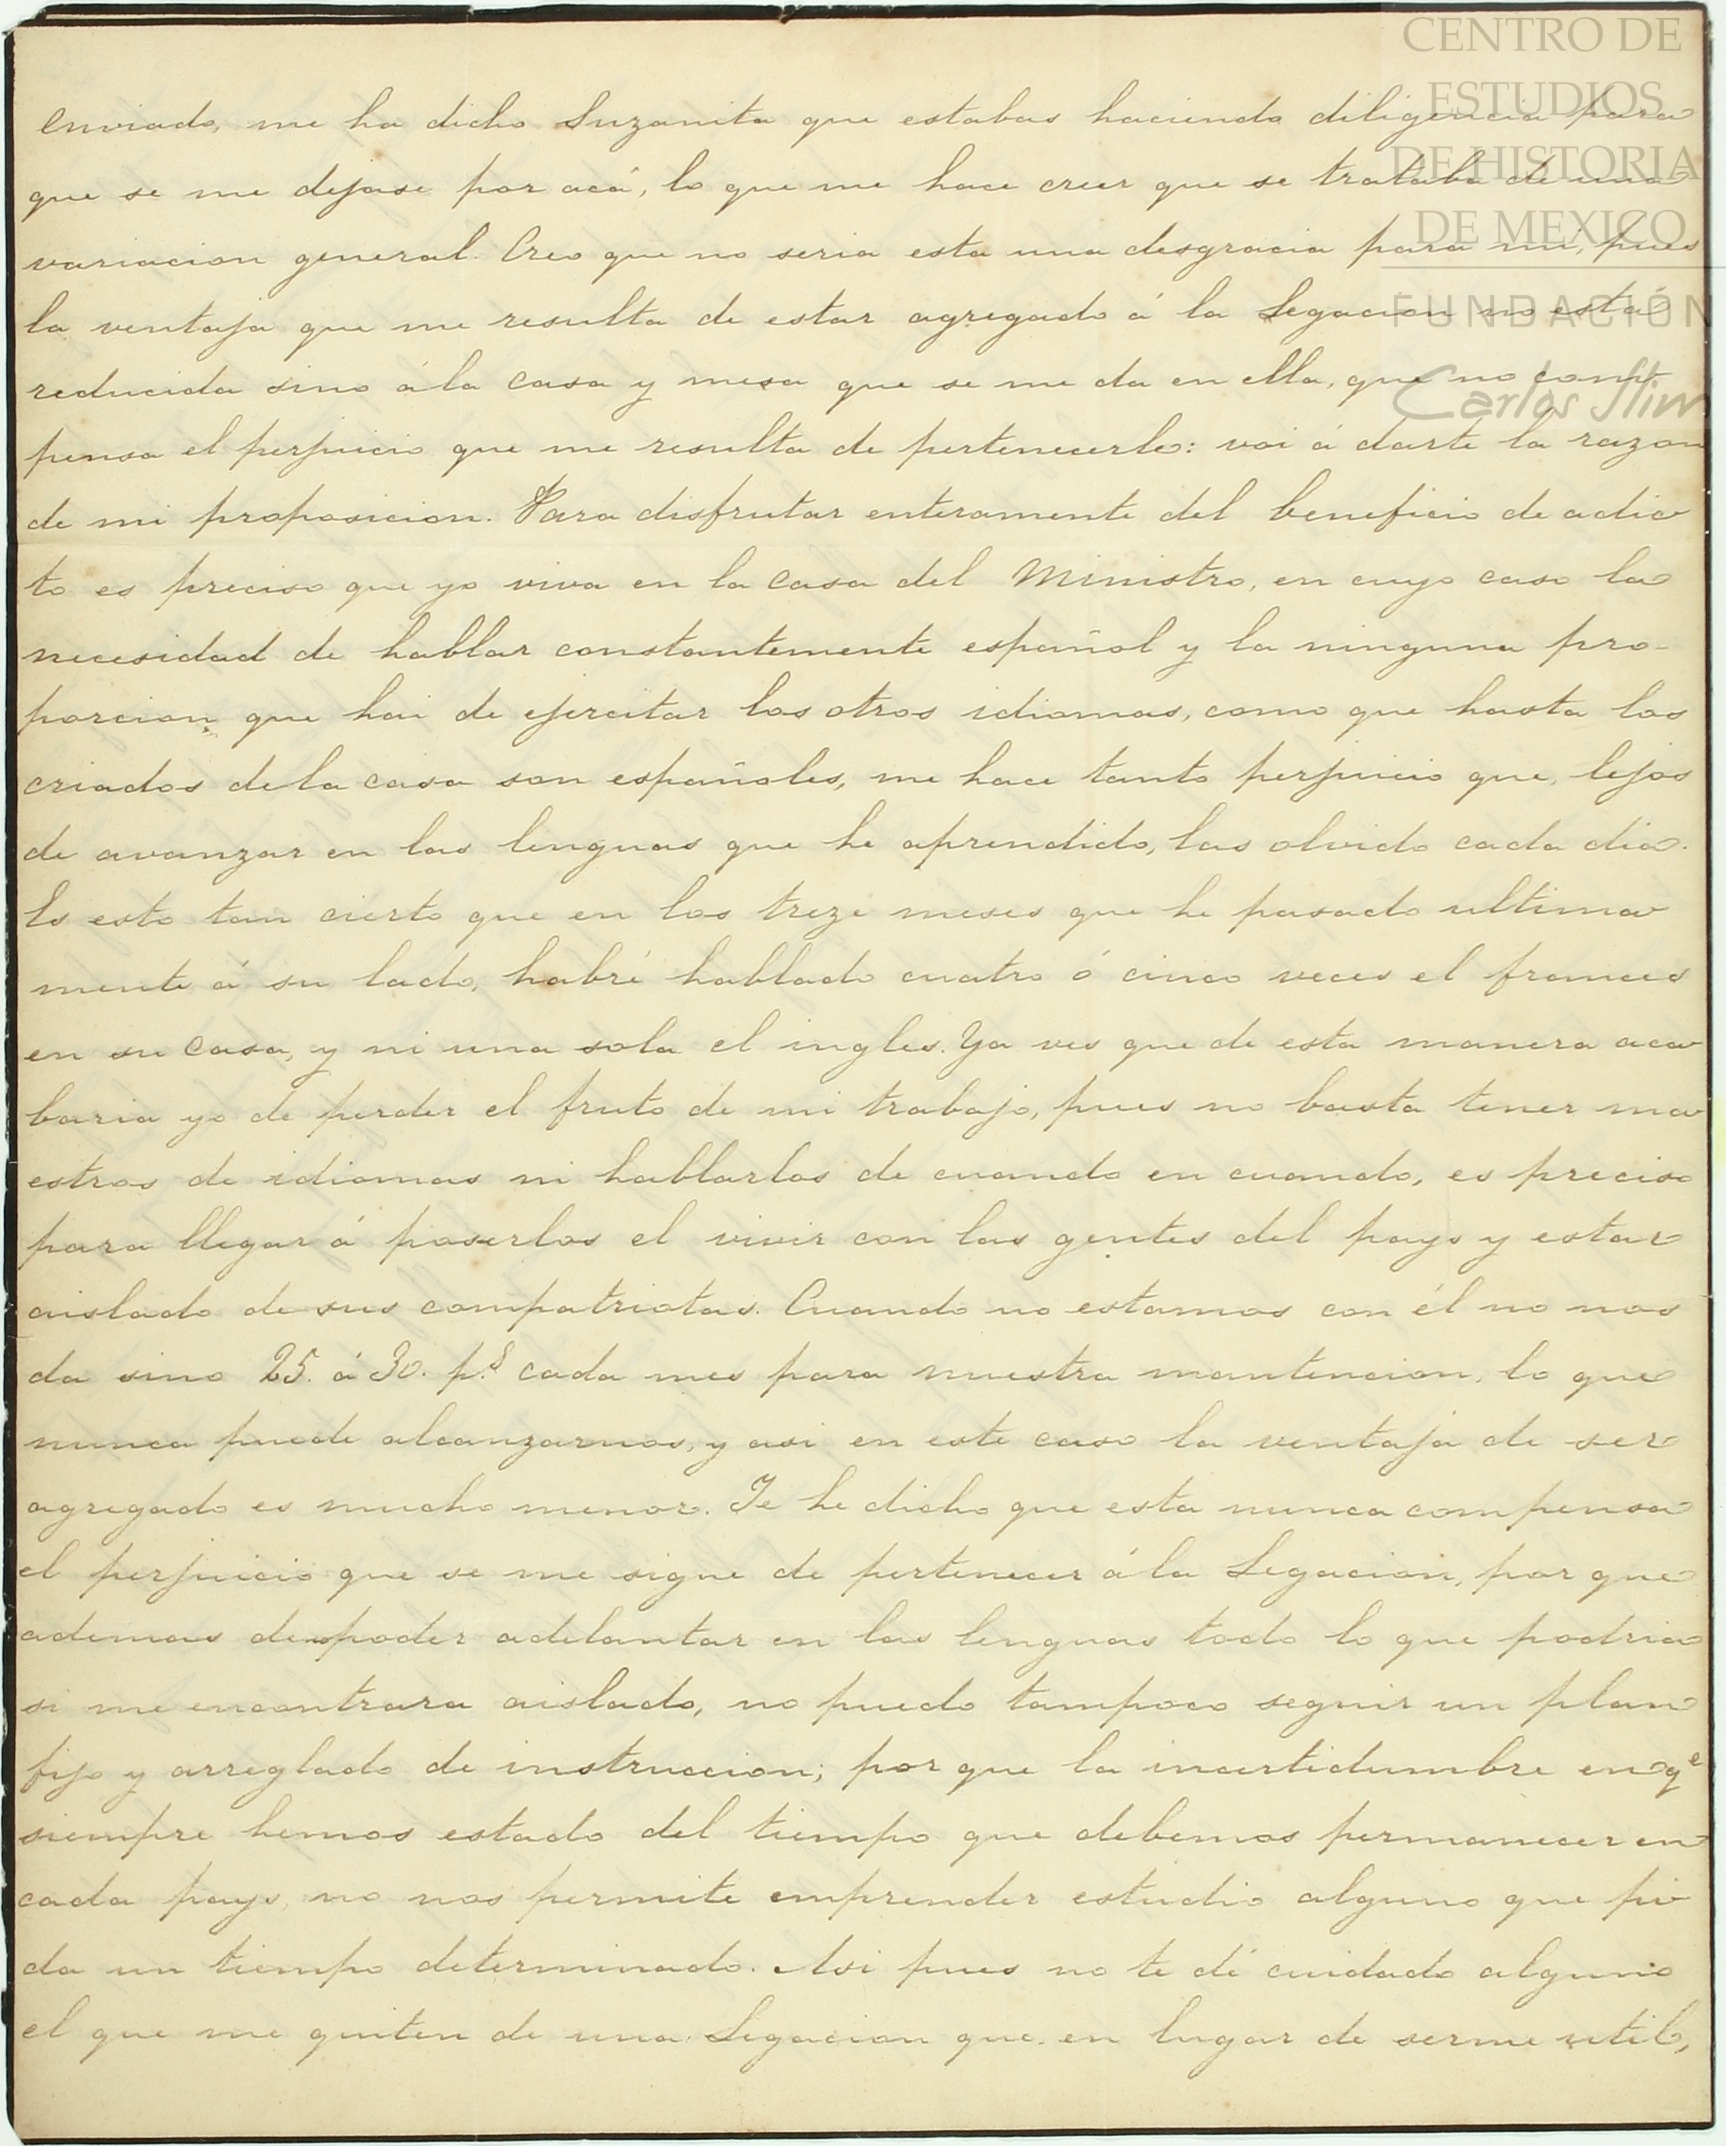 enviado, me ha dicho Suzanita que estabas haciendo diligencia para
que se me dejase por acá, lo que me hace creer que se trataba de una
variacion general. Creo que no seria esta una desgracia para mi, pues
la ventaja que me resulta de estar agregado á la Legacion no está
reducida sino á la casa y mesa que se me da en ella, que no com-
pensa el perjuicio que me resulta de pertenecerle: voi á darte la razon
de mi proposicion. Para disfrutar enteramente del beneficio de adic-
to es preciso que yo viva en la casa del Ministro, en cuyo caso la
necesidad de hablar constantemente español y la ninguna pro-
porcion que hai de ejercitar los otros idiomas, como que hasta los
criados de la casa son españoles, me hace tanto perjuicio que, lejos
de avanzar en las lenguas que he aprendido, las olvido cada dia.
Es esto tan cierto que en los treze meses que he pasado ultima-
mente á su lado, habré hablado cuatro ó cinco veces el frances
en su casa, y ni una sola el ingles. Ya ves que de esta manera aca-
baria yo de perder el fruto de mi trabajo, pues no basta tener ma-
estros de idiomas ni hablarlos de cuando en cuando, es preciso
para llegar á poserlos el vivir con las gentes del pays y estar
aislado de sus compatriotas. Cuando no estamos con él no nos
da sino 25. á 30. p.s cada mes para nuestra mantencion, lo que
nunca puede alcanzarnos, y asi en este caso la ventaja de ser
agregado es mucho menor. Te he dicho que esta nunca compensa
el perjuicio que se me sigue de pertenecer á la Legacion, por que
ademas de poder adelantar en las lenguas todo lo que podria
si me encontrara aislado, no puedo tampoco seguir un plan
fijo y arreglado de instruccion; por que la incertidumbre en qe
siempre hemos estado del tiempo que debemos permanecer en
cada pays, no nos permite emprender estudio alguno que pi-
da un tiempo determinado. Asi pues no te dé cuidado alguno
el que me quiten de una Legacion que en lugar de serme util,
CENTRO DE
ESTUDIOS
DE HISTORIA
DE MEXICO
FUNDACIÓN
Carlos Slim